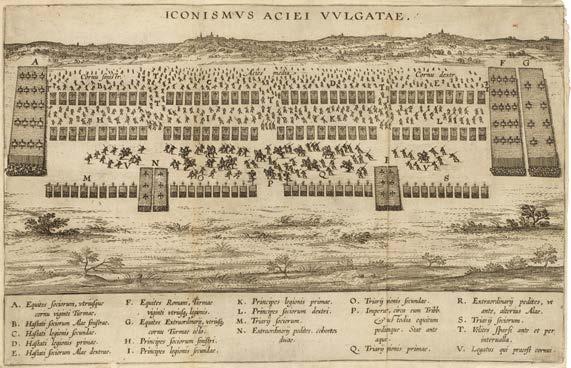 ICONISMVS ACIEI VVLGATAE.
A
F G
Cornu sinistr.
Acies media
Cornu dextr.
B
C
D
E
H
I
K
L
M
N
O
P
Q
R
S
A. Equites sociorum, utriusque
cornu viginti Turmae.
B. Hastati sociorum Alae sinistrae.
C. Hastati legionis secundae.
D. Hastati legionis primae.
E. Hastati sociorum Alae dextrae.
F. Equites Romani, Turmae
viginti utriusq, legionis.
G. Equites Extraordinarij, utriusq,
cornu Turmae
H. Principes sociorum sinistri.
I. Principes legionis secundae.
K. Principes legionis primae.
L. Principes sociorum dextri.
M. Triarij sociorum.
N. Extraordinarij pedites, cohortes
duae.
O. Triarij legionis secundae.
P. Imperat, circa eum Tribb.
& media equitum
peditumque. Stat ante
Q. Triarij legionis primae.
R. Extraordinarij pedites, vt
ante, alterius Alae.
S. Triarij sociorum.
T. Velites sparsi ante et per
interualla.
V. Legatus qui praeest cornui.